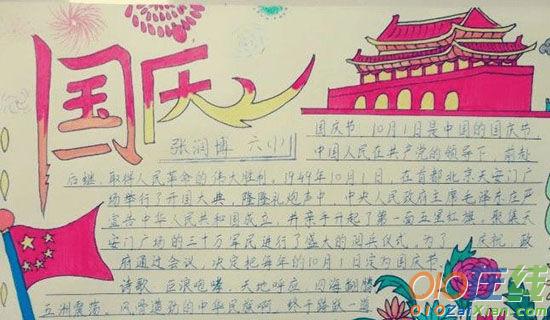 国庆
张润博 六(1)
国庆节，10月1日是中国的国庆节，
中国人民在共产党的领导下，前赴
后继，取得人民革命的伟大胜利，1949年10月1日，在首都北京天安门广
场举行了开国大典，隆隆礼炮声中，中央人民政府主席毛泽东庄严
宣告中华人民共和国成立，并亲手升起了第一面五星红旗，聚集天
安门广场的三十万军民进行了盛大的阅兵仪式，为了 庆祝，政
府通过会议，决定把每年的10月1日定为国庆节。
诗歌，巨浪咆哮，天地呼应，四海翻腾
五洲震荡，风雷激励的中华民族啊，终于踏
在线
ZaiXian.com